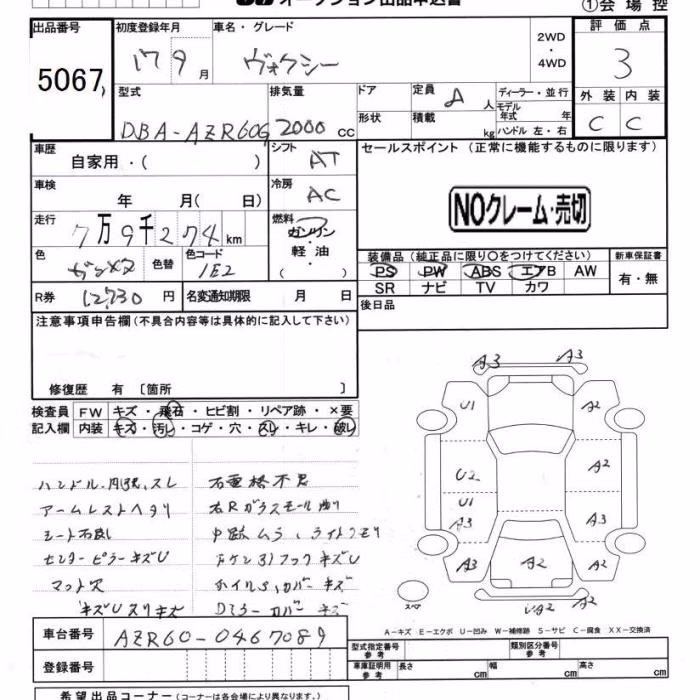 オークション出品申込書
①会場控
出品番号 初度登録年月 車名・グレード 2WD・4WD 評価点
5067 17 9月 ヴォクシー 3
型式 排気量 ドア 定員 A 人 ディーラー・並行 外装 内装
DBA-AZR60G 2000 cc 形状 積載 kg モデル年式 年 ハンドル 左・右 C C
車歴 自家用・( ) シフト AT セールスポイント(正常に機能するものに限ります)
車検 年 月( 日) 冷房 AC
NOクレーム・売切
走行 7万9千274km 燃料 ガソリン・軽油・( )
色 ガンメタ 色替 色コード 1E2
装備品(純正品に限り○をつけてください) 新車保証書
PS PW ABS エアB AW 有・無
SR ナビ TV カワ
R券 12,730 円 名変通知期限 月 日
後日品
注意事項申告欄(不具合内容等は具体的に記入して下さい)
修復歴 有 [箇所 ]
検査員 FW キズ・飛石・ヒビ割・リペア跡・×要
記入欄 内装 キズ・汚レ・コゲ・穴・スレ・キレ・破レ
A3 A3
U1 A2
U2 A2
U1
A3 A3
A3 A2 A2
A2
スペア
ハンドル スレ
アームレストヘタリ
センターピラーキズU
キズU スリキズ
A-キズ E-エクボ U-凹み W-補修跡 S-サビ C-腐食 XX-交換済
車台番号 AZR60-0467089
型式指定番号 参考 類別区分番号 参考
登録番号
車庫証明用 参考 長さ cm 幅 cm 高さ cm
希望出品コーナー(コーナーは各会場により異なります。)